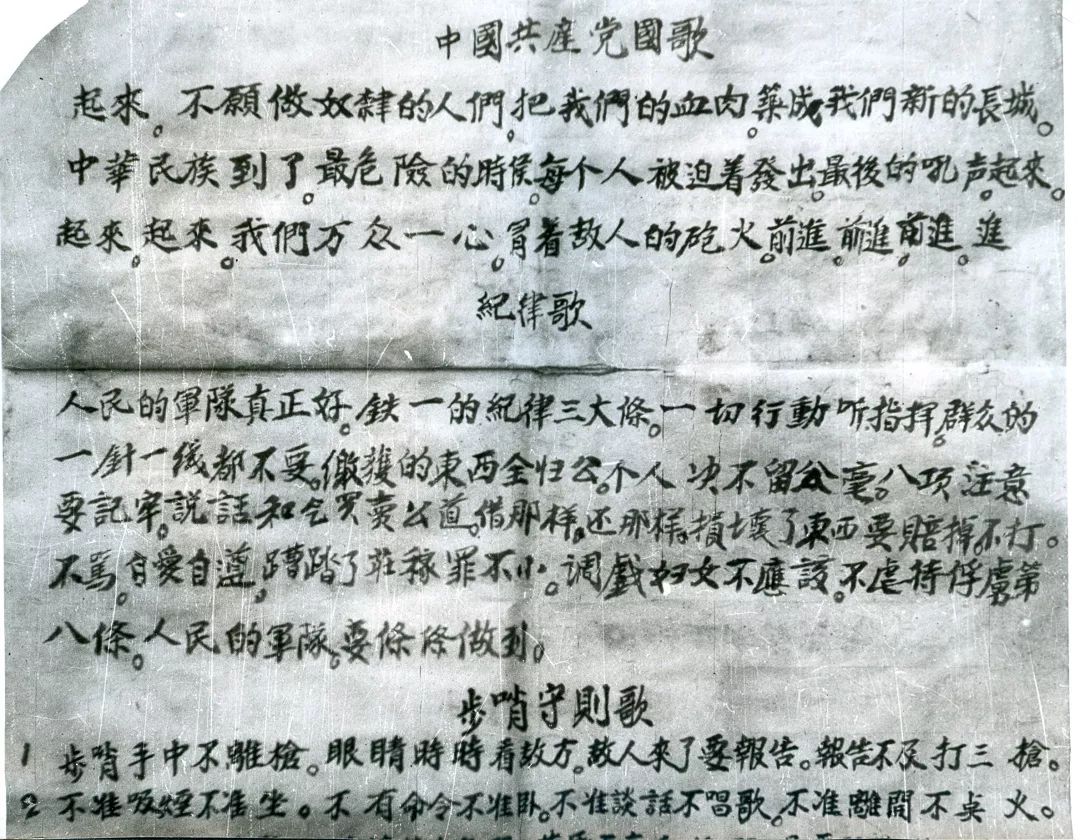 中國共産党國歌
起來。不願做奴隸的人們。把我們的血肉。築成我們新的長城。
中華民族到了。最危險的時侯。每个人被迫着發出。最後的吼声。起來。
起來。起來。我們万众一心。冒着敌人的砲火。前進。前進。前進。進
紀律歌
人民的軍隊真正好。鉄一的紀律三大條。一切行動听指揮。群众的
一針一綫都不要。缴獲的東西全归公。个人决不留公毫。八項注意
要記牢。説話和气買卖公道。借那樣。还那樣。損壊了東西要賠掉。不打。
不罵。自愛自遵。蹧踏了莊稼罪不小。调戲妇女不應該。不虐待俘虜第
八條。人民的軍隊。要條條做到。
步哨守則歌
1 步哨手中不離槍。眼睛時時看敌方。敌人来了要報告。報告不及打三槍。
2 不准吸煙不准坐。不有命令不准卧。不准談話不唱歌。不准離開不点火。